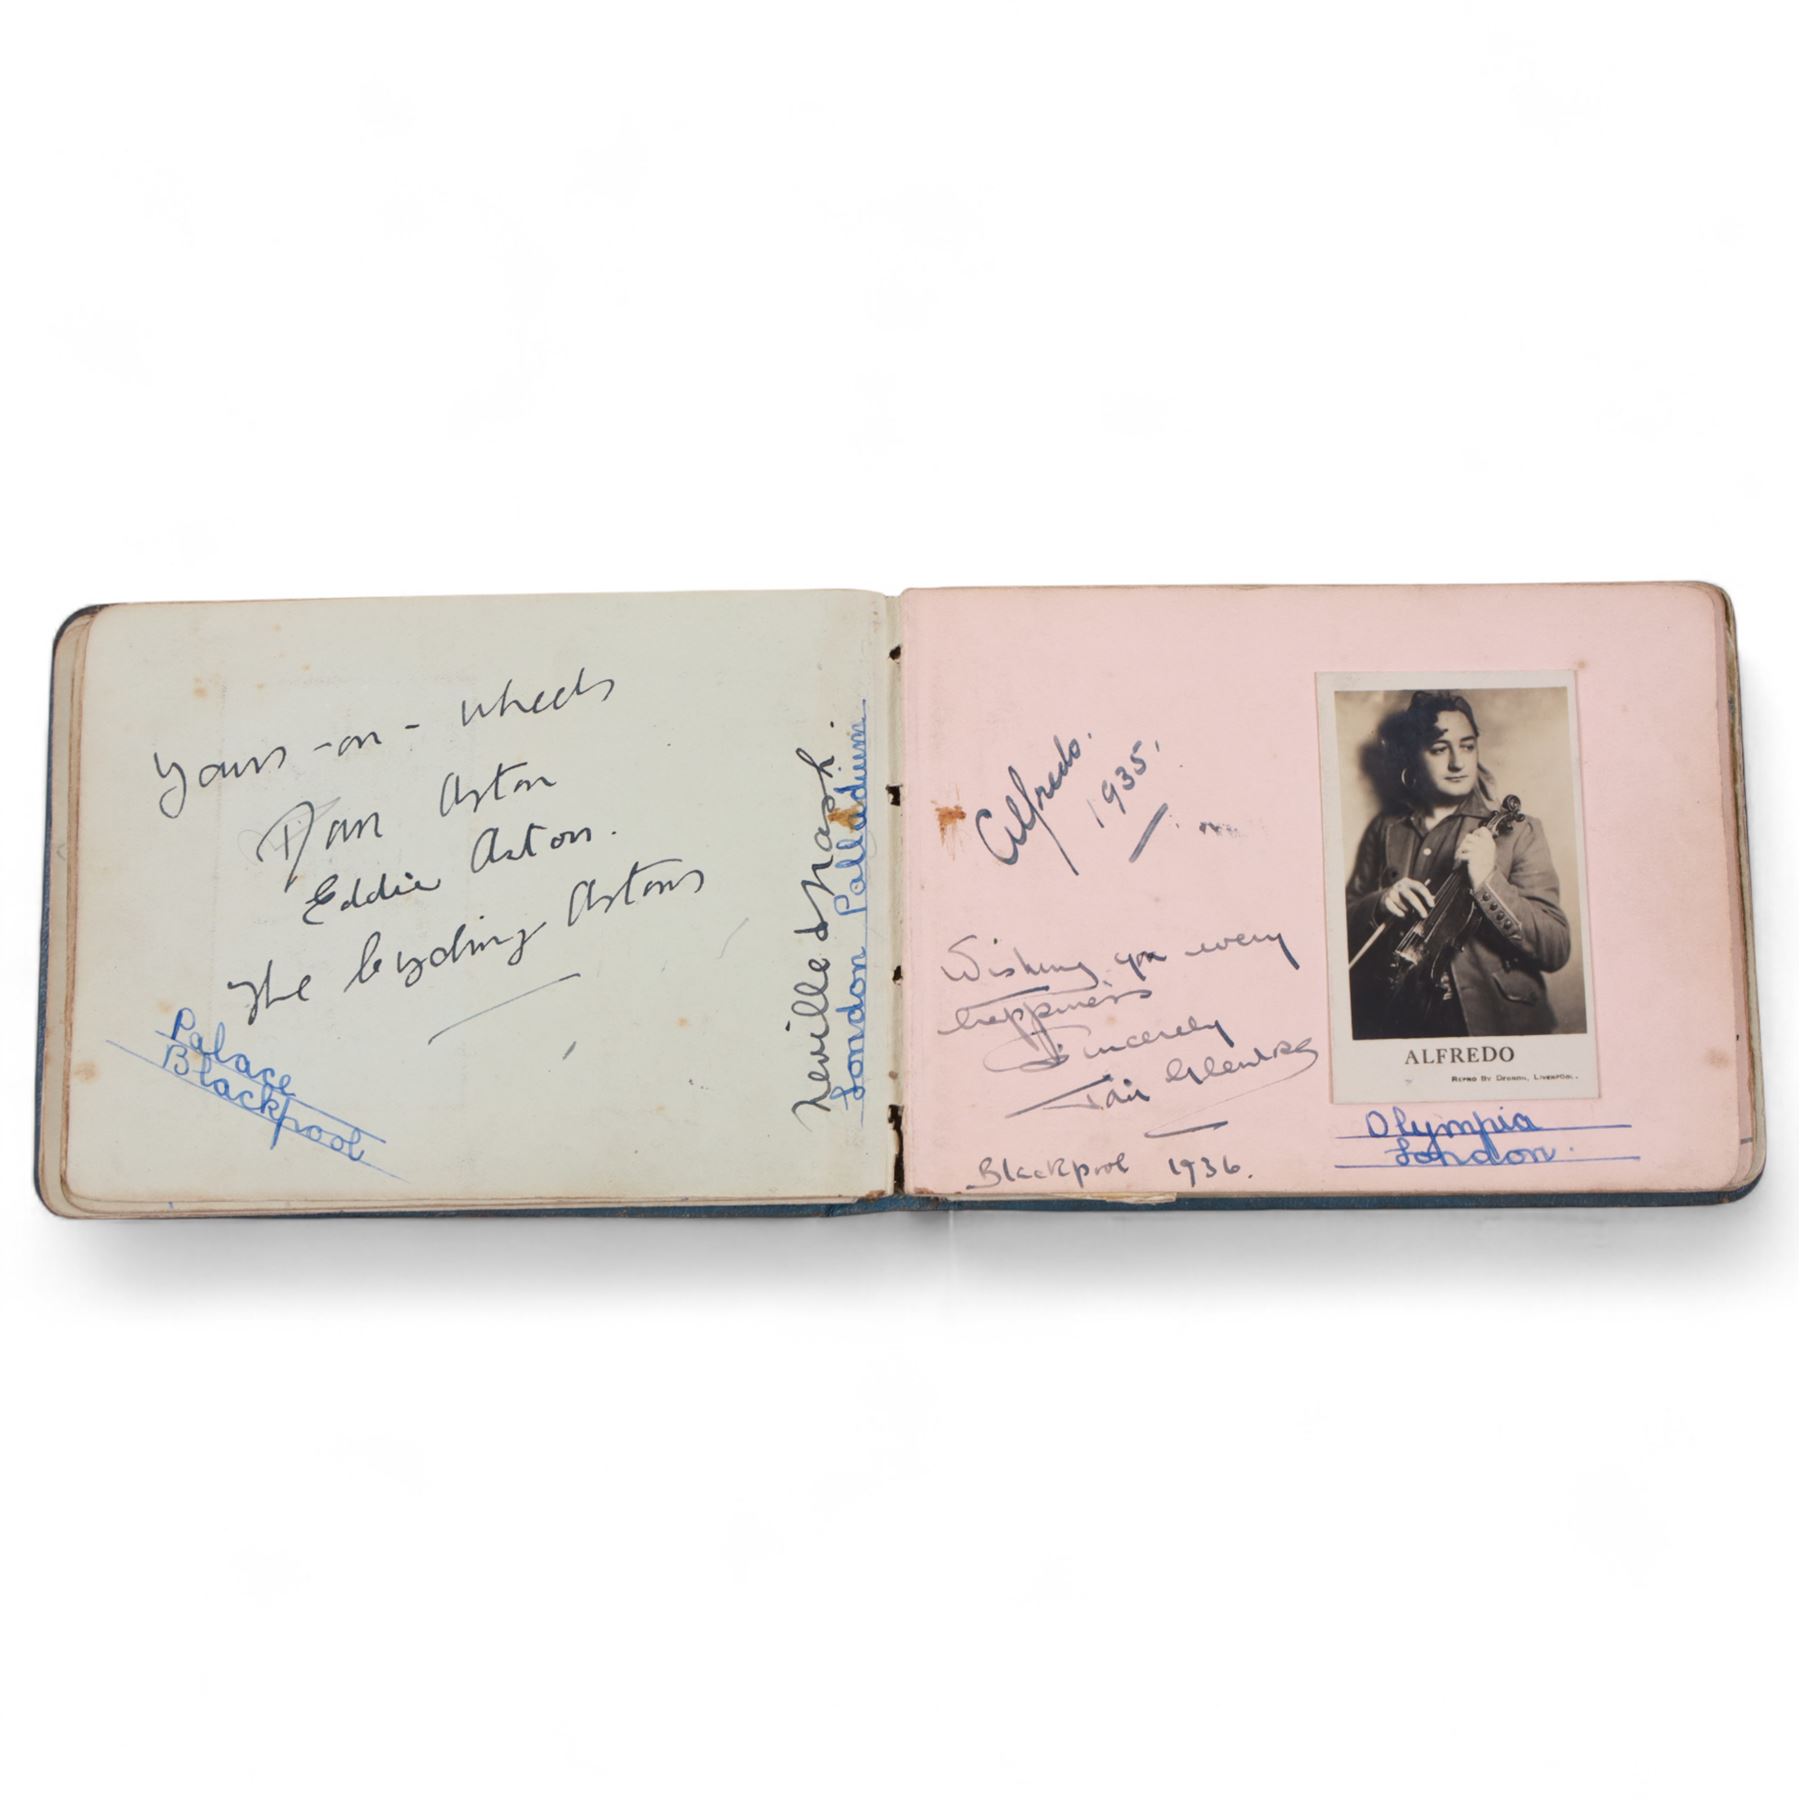 Yours - on - wheels
Dan Aston
Eddie Aston.
The Cycling Astons
Palace
Blackpool
Neville & Nash.
London Palladium
Alfredo.
1935.
Wishing you every
happiness
Sincerely
Blackpool 1936.
ALFREDO
REPRO BY LIVERPOOL.
Olympia
London.